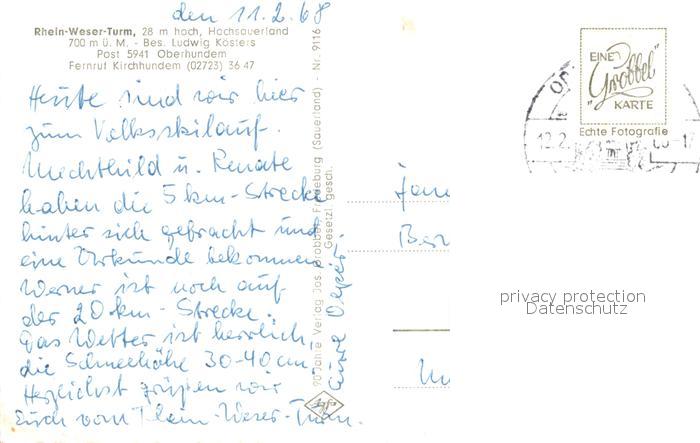 den 11.2.68
Rhein-Weser-Turm, 28 m hoch, Hochsauerland
700 m ü. M. - Bes. Ludwig Kösters
Post 5941 Oberhundem
Fernruf Kirchhundem (02723) 36 47
Heute sind wir hier
zum Volksskilauf.
Mechthild u. Renate
haben die 5 km-Strecke
hinter sich gebracht und
eine Urkunde bekommen
Werner ist noch auf
der 20 km-Strecke.
Das Wetter ist herrlich,
die Schneehöhe 30-40 cm.
Herzlichst grüßen wir
Euch vom Rhein-Weser-Turm.
90 Jahre Verlag Jos. Grobbel, Fredeburg (Sauerland) - Nr. 9116
Gesetzl. gesch.
EINE
"Grobbel"
KARTE
Echte Fotografie
12.2.
-17
Fam
privacy protection
Datenschutz